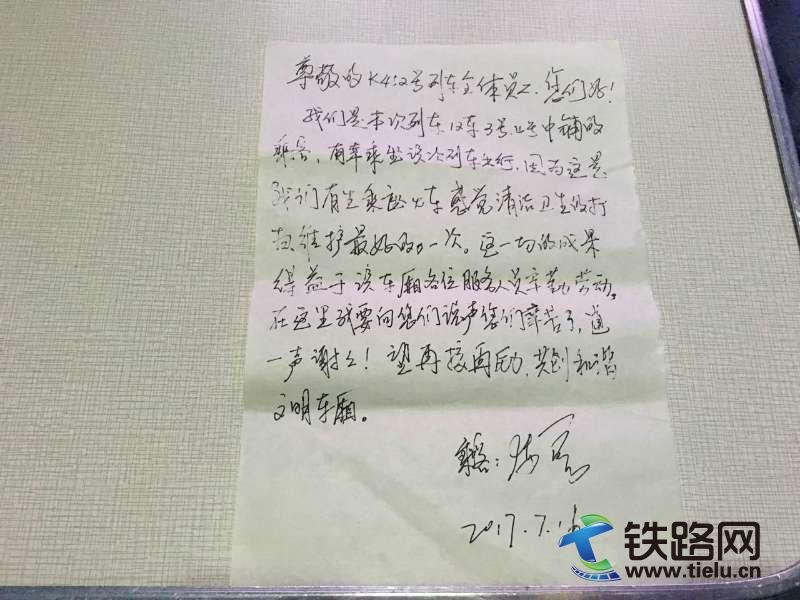 尊敬的K412号列车全体员工，您们好！
我们是本次列车12车3号上铺中铺的
乘客，有幸乘坐该次列车出行，因为这是
我们有生乘座火车感觉清洁卫生的打
扫维护最好的一次。这一切的成果
得益于该车厢各位服务人员辛勤劳动。
在这里我要向您们说声您们辛苦了，道
一声谢谢！望再接再励，共创和谐
文明车厢。
乘客：
2017.7.16
铁路网
www.tielu.cn